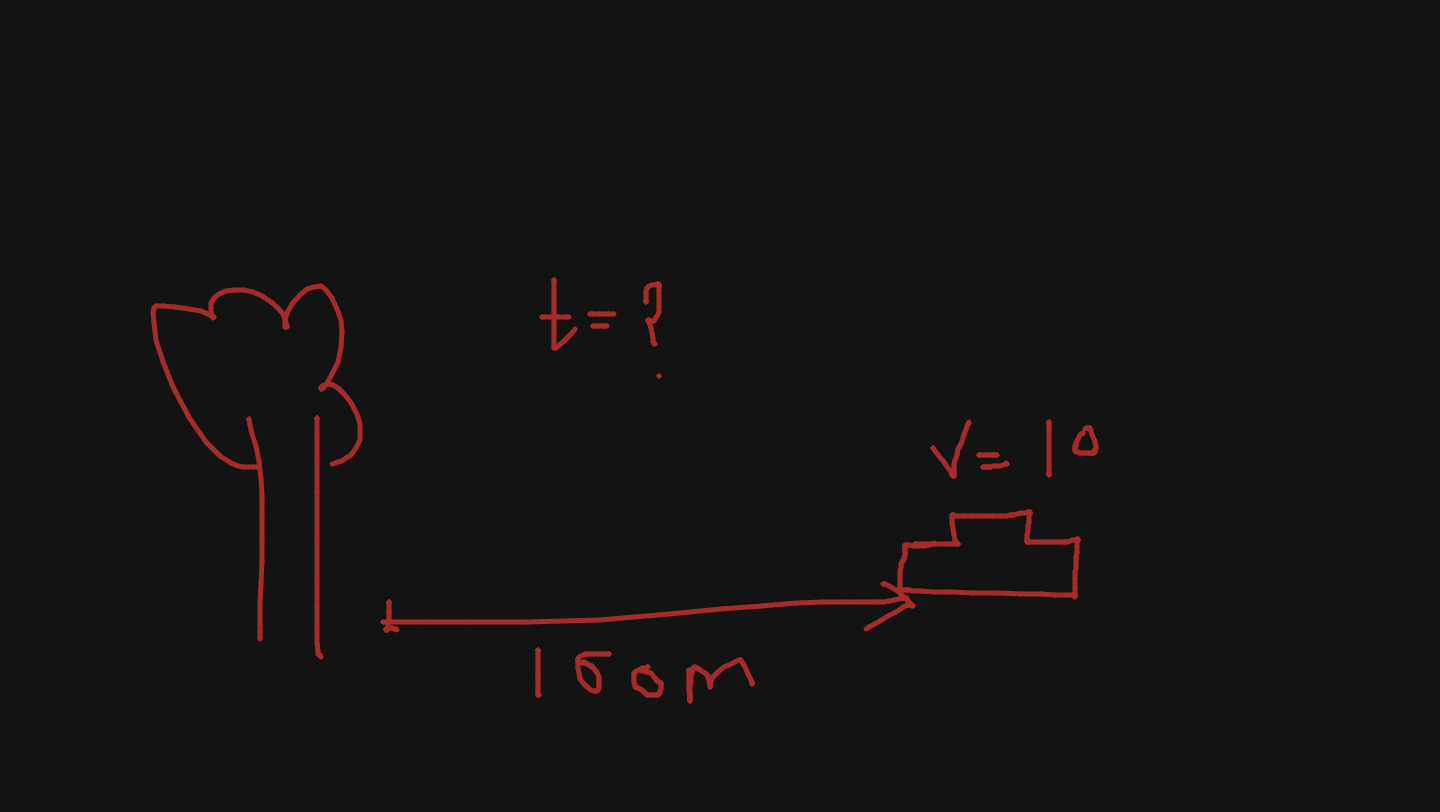 t=?
v=10
150m